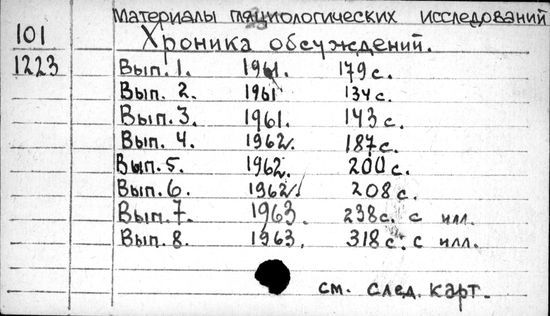 Материалы исследований
101 Хроника обсуждений.
1223 Вып. 1. 1961. 179 с.
Вып. 2. 1961 134 с.
Вып. 3. 1961. 143 с.
Вып. 4. 1962. 187 с.
Вып. 5. 1962. 200 с.
Вып. 6. 1962. 208 с.
Вып. 7. 1963. 238 с. с илл.
Вып. 8. 1963. 318 с. с илл.
см. след. карт.